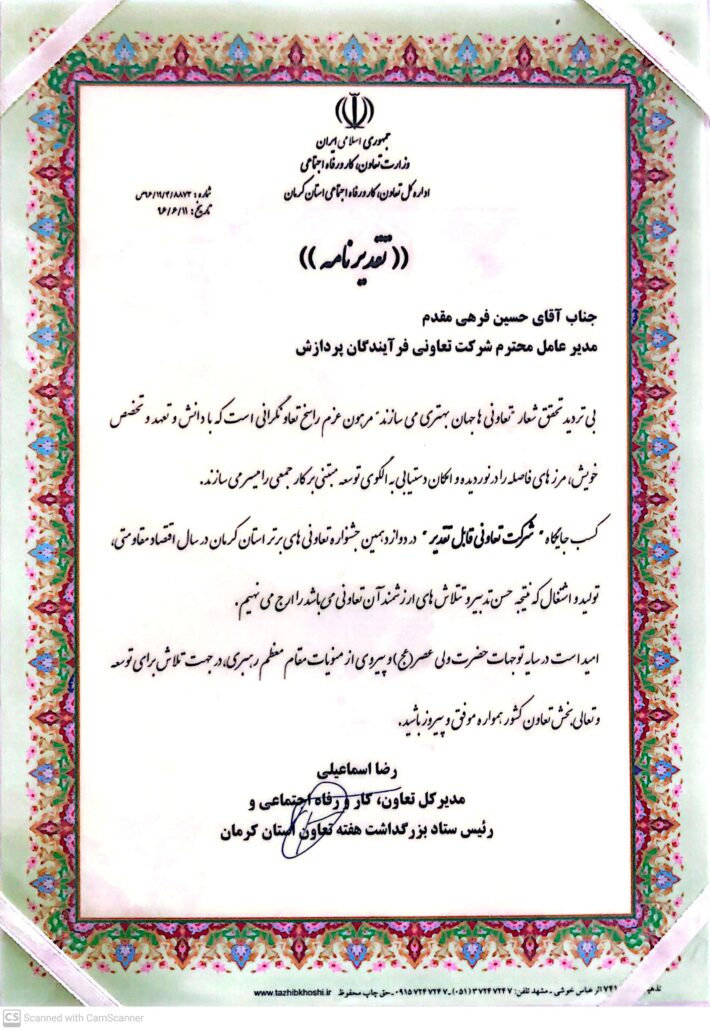 جمهوری اسلامی ایران
وزارت تعاون، کار و رفاه اجتماعی
اداره کل تعاون، کار و رفاه اجتماعی استان کرمان
شماره: ۹۶/۱۱/۴/۸۸۷۳ص
تاریخ: ۹۶/۶/۱۱
(( تقدیرنامه ))
جناب آقای حسین فرهی مقدم
مدیر عامل محترم شرکت تعاونی فرآیندگان پردازش
بی تردید تحقق شعار "تعاونی ها جهان بهتری می سازند" مرهون عزم راسخ تعاونگرانی است که با دانش و تعهد و تخصص
خویش، مرزهای فاصله را درنوردیده و امکان دستیابی به الگوی توسعه مبتنی بر کار جمعی را میسر می سازند.
کسب جایگاه " شرکت تعاونی قابل تقدیر " در دوازدهمین جشنواره تعاونی های برتر استان کرمان در سال اقتصاد مقاومتی،
تولید و اشتغال که نتیجه حسن تدبیر و تلاش های ارزشمند آن تعاونی می باشد را ارج می نهیم.
امید است در سایه توجهات حضرت ولی عصر(عج) و پیروی از منویات مقام معظم رهبری، در جهت تلاش برای توسعه
و تعالی بخش تعاون کشور همواره موفق و پیروز باشید.
رضا اسماعیلی
مدیرکل تعاون، کار و رفاه اجتماعی و
رئیس ستاد بزرگداشت هفته تعاون استان کرمان
اثر عباس خوشی - مشهد تلفن: ۳۷۲۴۷۲۴۷ (۰۵۱) - ۰۹۱۵۷۲۴۷۲۴۷ - حق چاپ محفوظ www.tazhibkhoshi.ir
CS Scanned with CamScanner